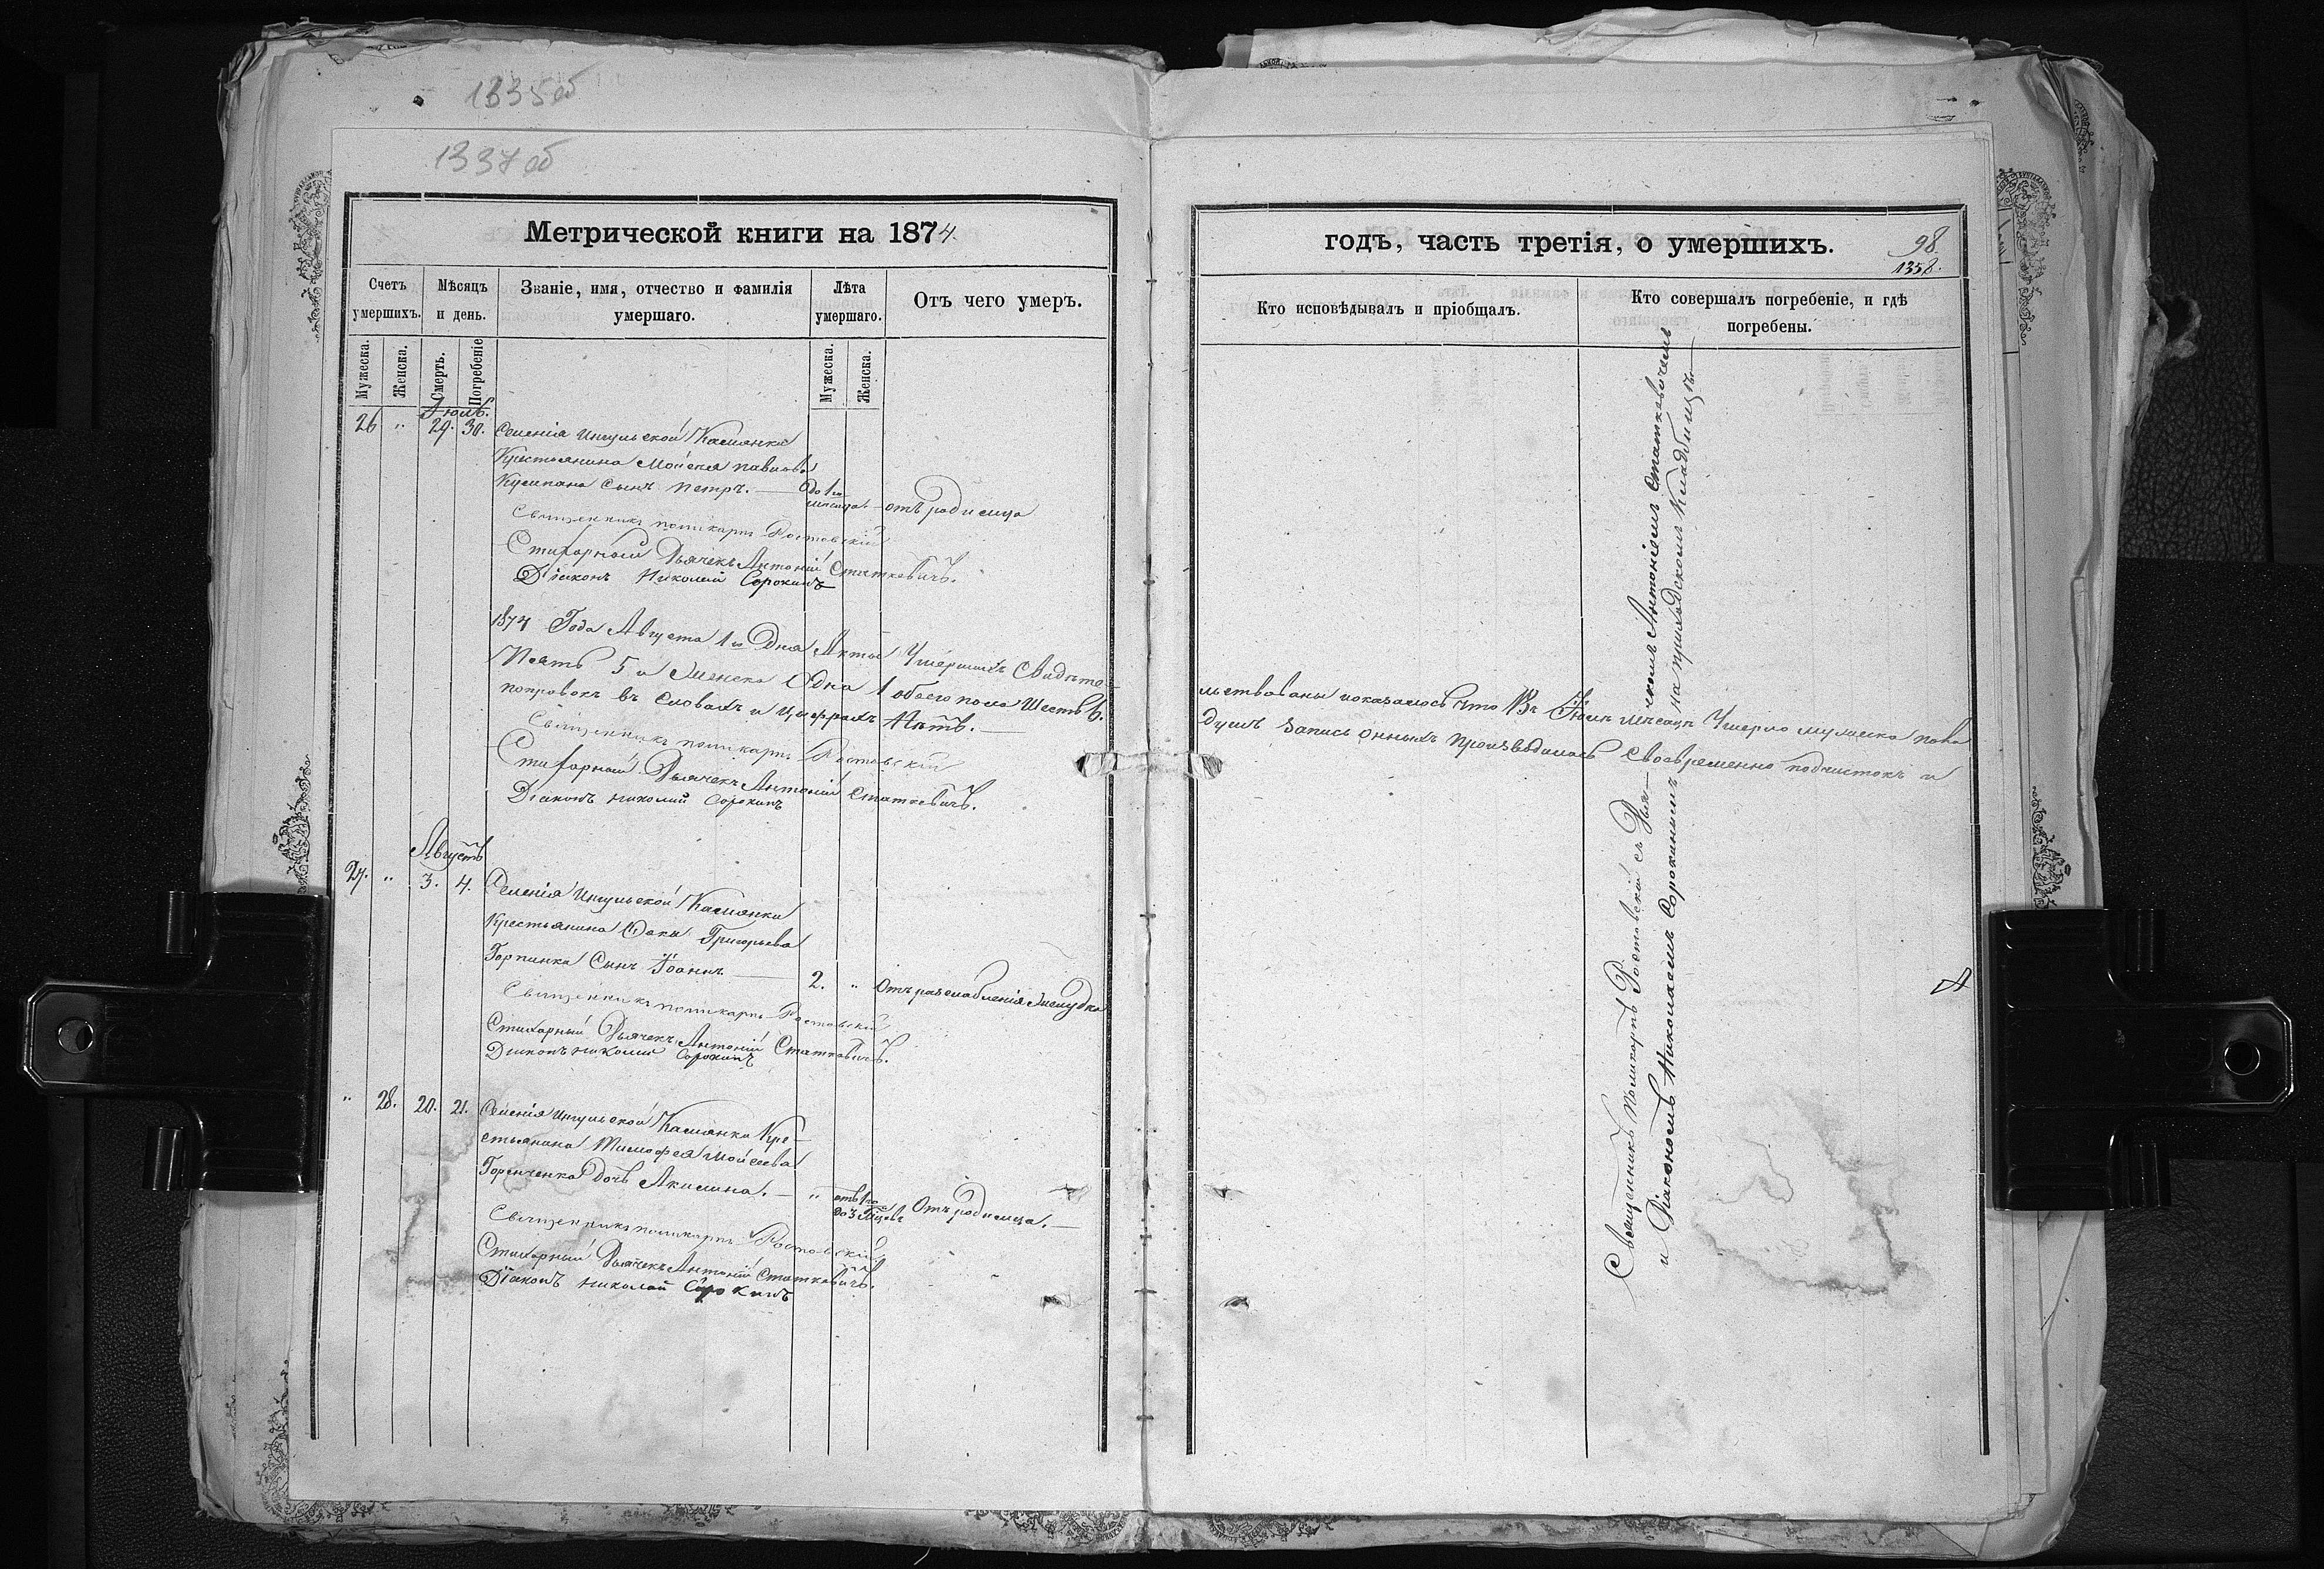 1335об
1337об
Метрической книги на 1874.
Счетъ умершихъ.
Мѣсяцъ и день.
Званіе, имя, отчество и фамилія умершаго.
Лѣта умершаго.
Отъ чего умеръ.
Мужеска.
Женска.
Смерть.
Погребеніе
Мужеска.
Женска.
Іюль.
26 " 29. 30. Селенія Ингульской Камянки
Крестьянина Мойсея Павлова
сынъ Петръ. — до 1го мѣсяца — отъ родимца
Священникъ Поликарпъ Ростовскій
Стихарный Дьячекъ Антоній Статкевичъ.
Діаконъ Николай Сорокинъ
1874 Года Августа 1го Дня Акты Умершихъ Свидѣте-
Пять 5 и Женска Одна 1 обоего пола Шесть 6.
поправокъ въ словахъ и цыфрахъ Нѣтъ. —
Священникъ Поликарпъ Ростовскій
Стихарный Дьячекъ Антоній Статкевичъ.
Діаконъ Николай Сорокинъ
Августъ
27. " 3. 4. Селенія Ингульской Камянки
Крестьянина Григорьева
сынъ Іоаннъ — 2. " Отъ разслабленія желудка
Священникъ Поликарпъ Ростовскій
Стихарный Дьячекъ Антоній Статкевичъ.
Діаконъ Николай Сорокинъ
" 28. 20. 21. Селенія Ингульской Камянки Кре-
стьянина Тимофея Мойсеева
Горенченка дочь Акилина. — " отъ 1го до 3 Отъ родимца. —
Священникъ Поликарпъ Ростовскій
Стихарный Дьячекъ Антоній Статкевичъ.
Діаконъ Николай Сорокинъ
годъ, часть третія, о умершихъ.
98
1358.
Кто исповѣдывалъ и пріобщалъ.
Кто совершалъ погребеніе, и гдѣ погребены.
льствованы и оказалось что Въ Іюлѣ мѣсяцѣ Умерло мужеска пола
душъ запись онныхъ производилась своевременно подчистокъ и
Священникъ Поликарпъ Ростовскій съ Дья-
чкомъ Антоніемъ Статкевичемъ
и Діакономъ Николаемъ Сорокинымъ на приходскомъ Кладбищѣ. —